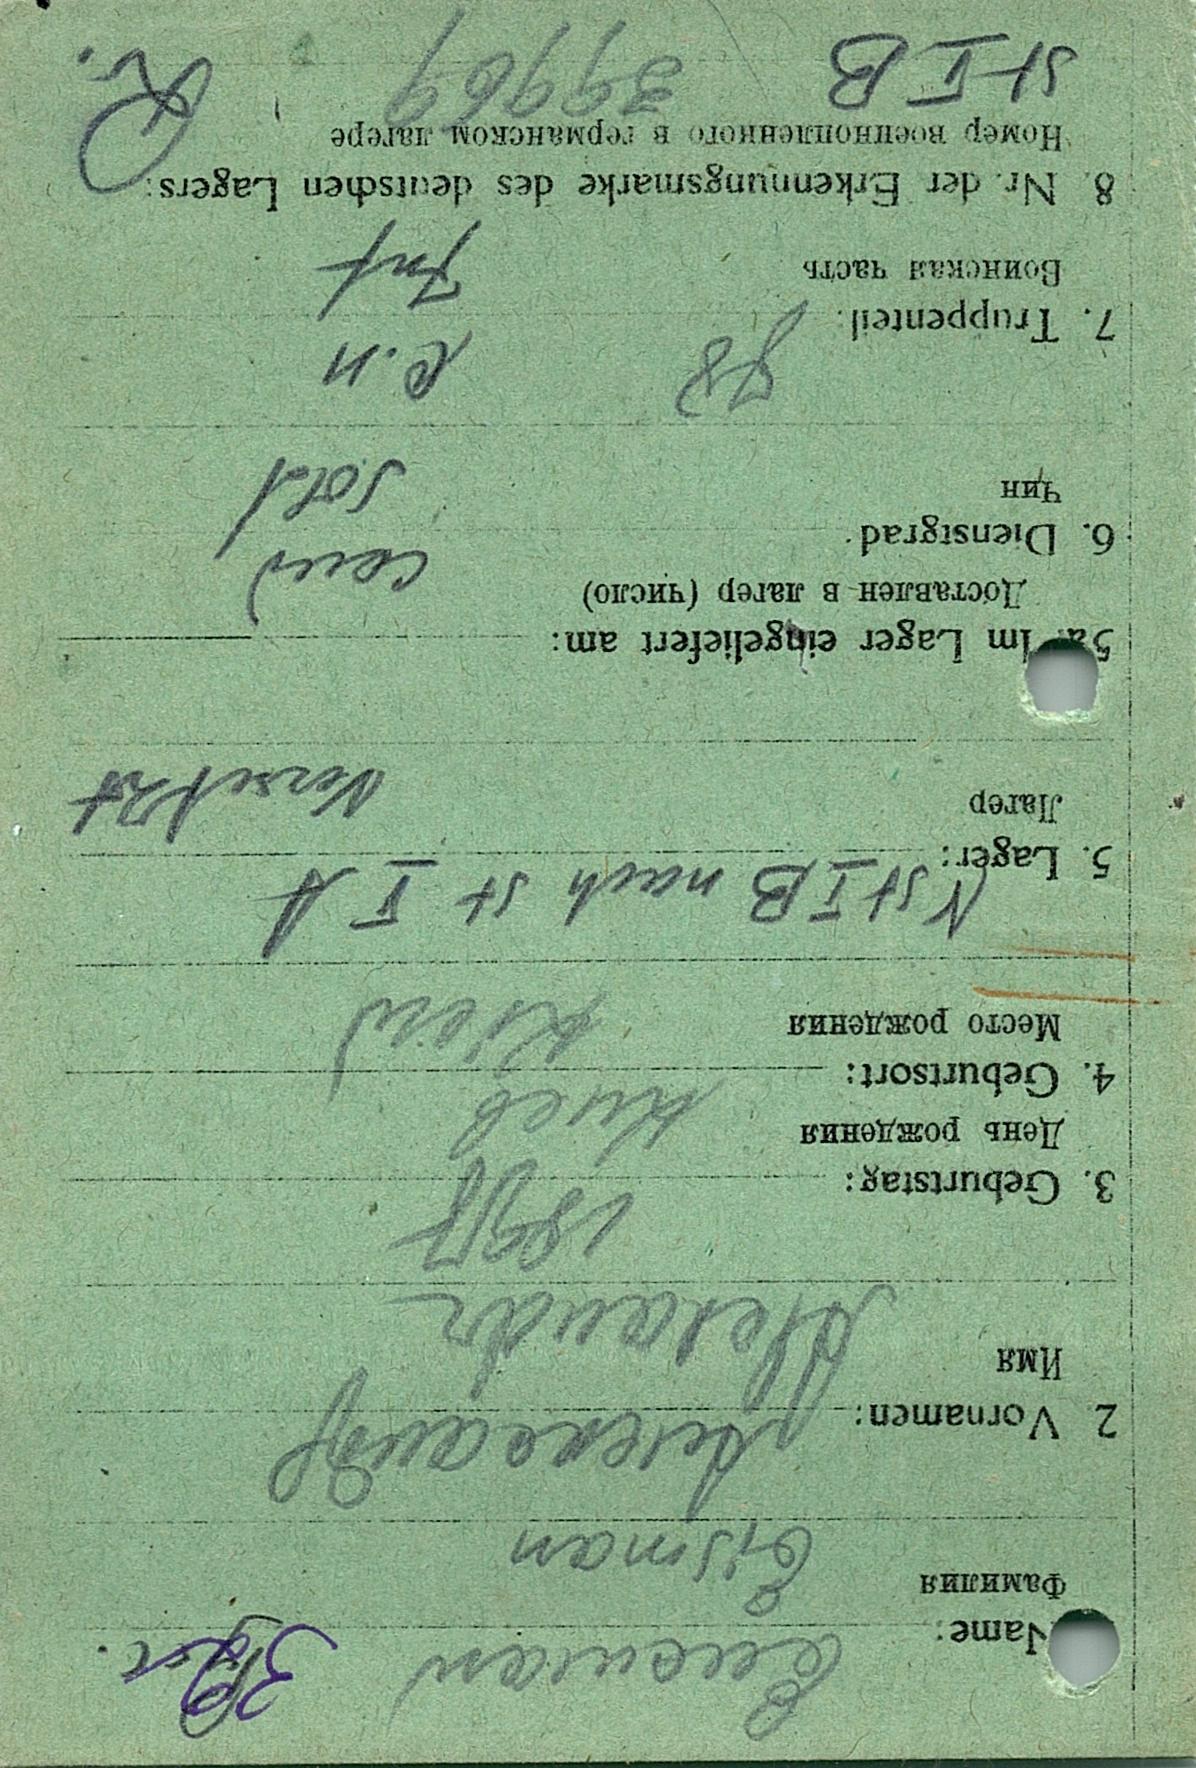 Name:
Фамилия
Eisman
2 Vornamen:
Имя
Alexandr
3. Geburtstag:
День рождения
Киев
4. Geburtsort:
Место рождения
Kiew
5. Lager:
N St I B nach St I A
Лагер
Versetzt
5a. Im Lager eingeliefert am:
Доставлен в лагер (число)
6. Dienstgrad
Чин
Sold
7. Truppenteil:
Воинская часть
Inf
8. Nr. der Erkennungsmarke des deutschen Lagers:
Номер военнопленного в германском лагере
St I B 39969